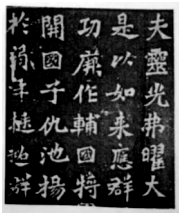 夫靈光弗曜大
是以如来應群
功厥作輔國將
開國子仇池揚
於弱年挺超群